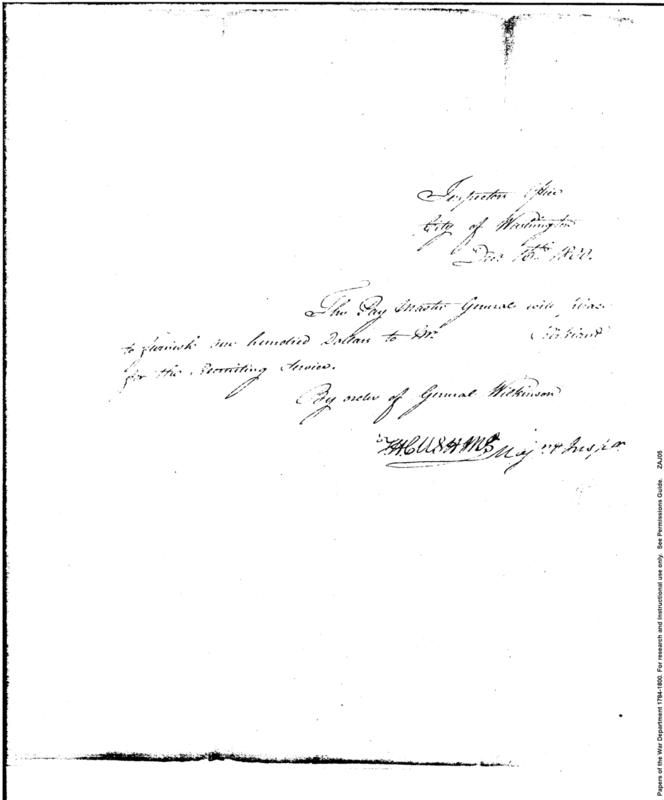 Inspectors Office
City of Washington
Decr 16th 1800.
The Pay Master General will please
to furnish one hundred Dollars to Mr
for the Recruiting Service.
By order of General Wilkinson
T H CUSHING Majr & Inspr
Papers of the War Department 1784-1800. For research and instructional use only. See Permissions Guide. ZAJ05